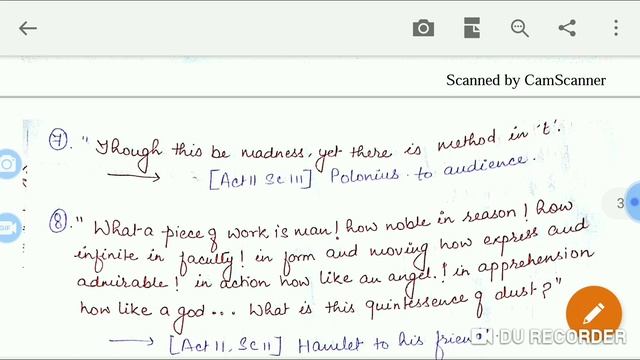 Scanned by CamScanner
7. "Though this be madness, yet there is method in 't'.
[Act II Sc III] Polonius to audience.
8. "What a piece of work is man! how noble in reason! how
infinite in faculty! in form and moving how express and
admirable! in action how like an angel! in apprehension
how like a god... What is this quintessence of dust?"
[Act II, Sc II] Hamlet to his friend
3
GIF
DU RECORDER